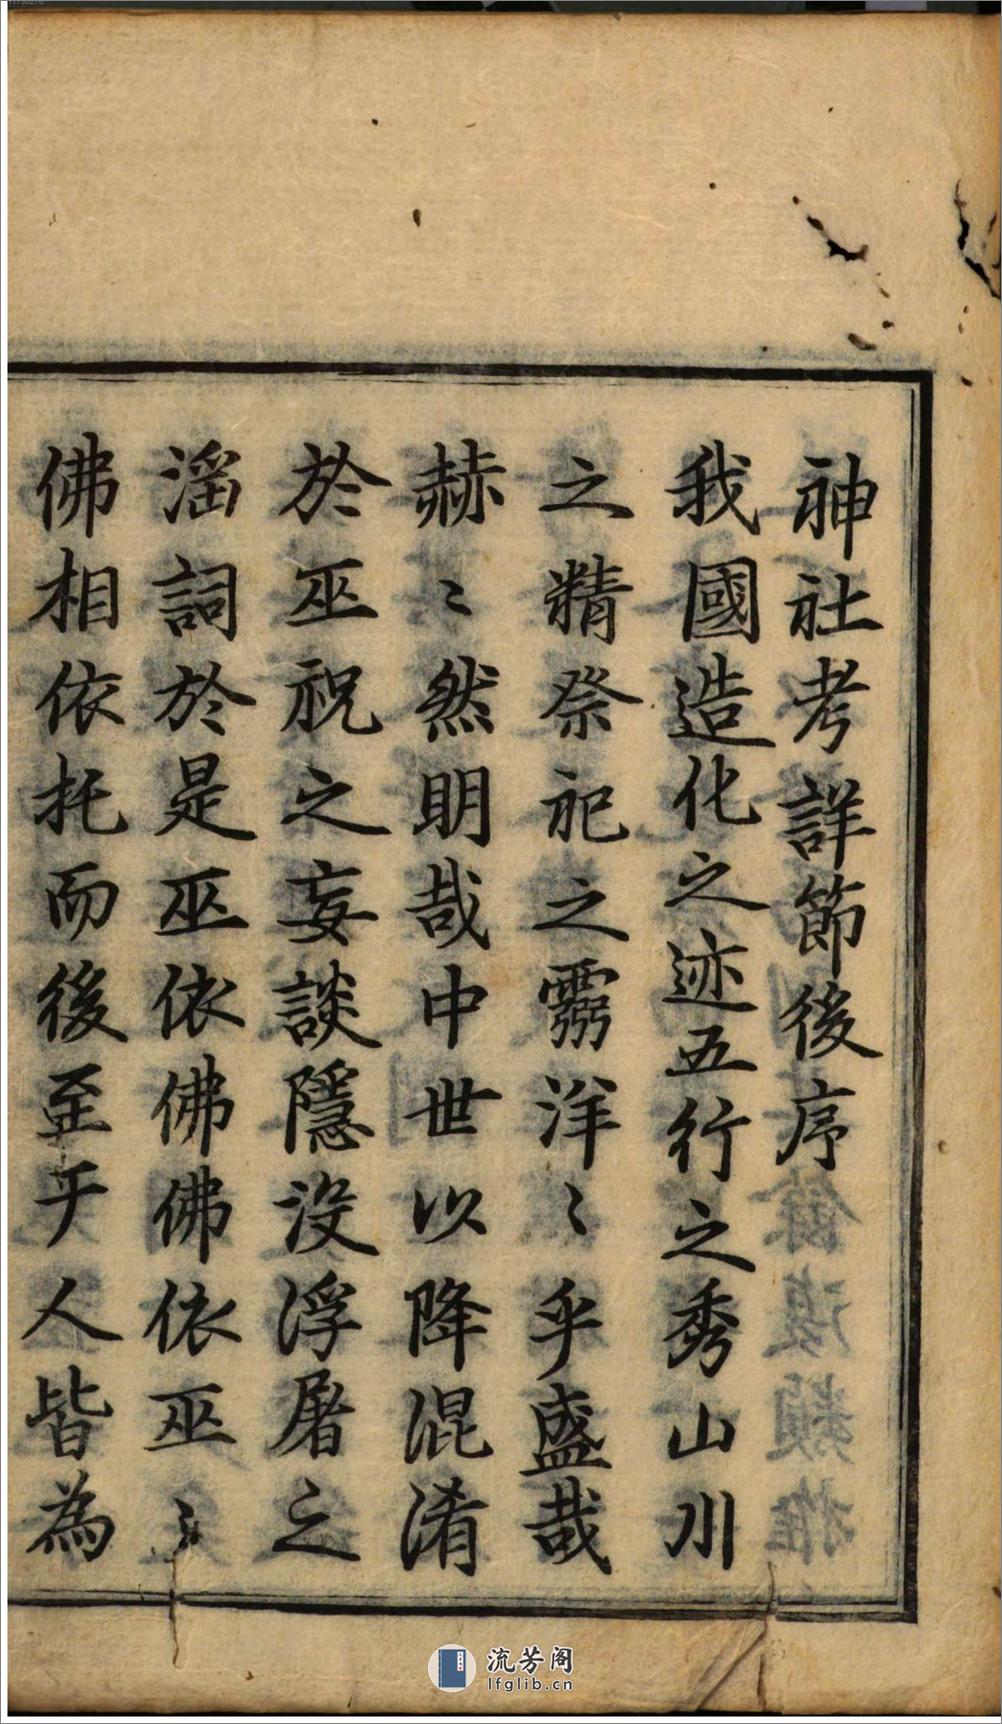 神社考詳節後序
我國造化之迹五行之秀山川
之精祭祀之靈洋〻乎盛哉
赫〻然明哉中世以降混淆
於巫祝之妄談隱没浮屠之
滛詞於是巫依佛佛依巫〻
佛相依托而後至于人皆為
流芳阁
lfglib.cn